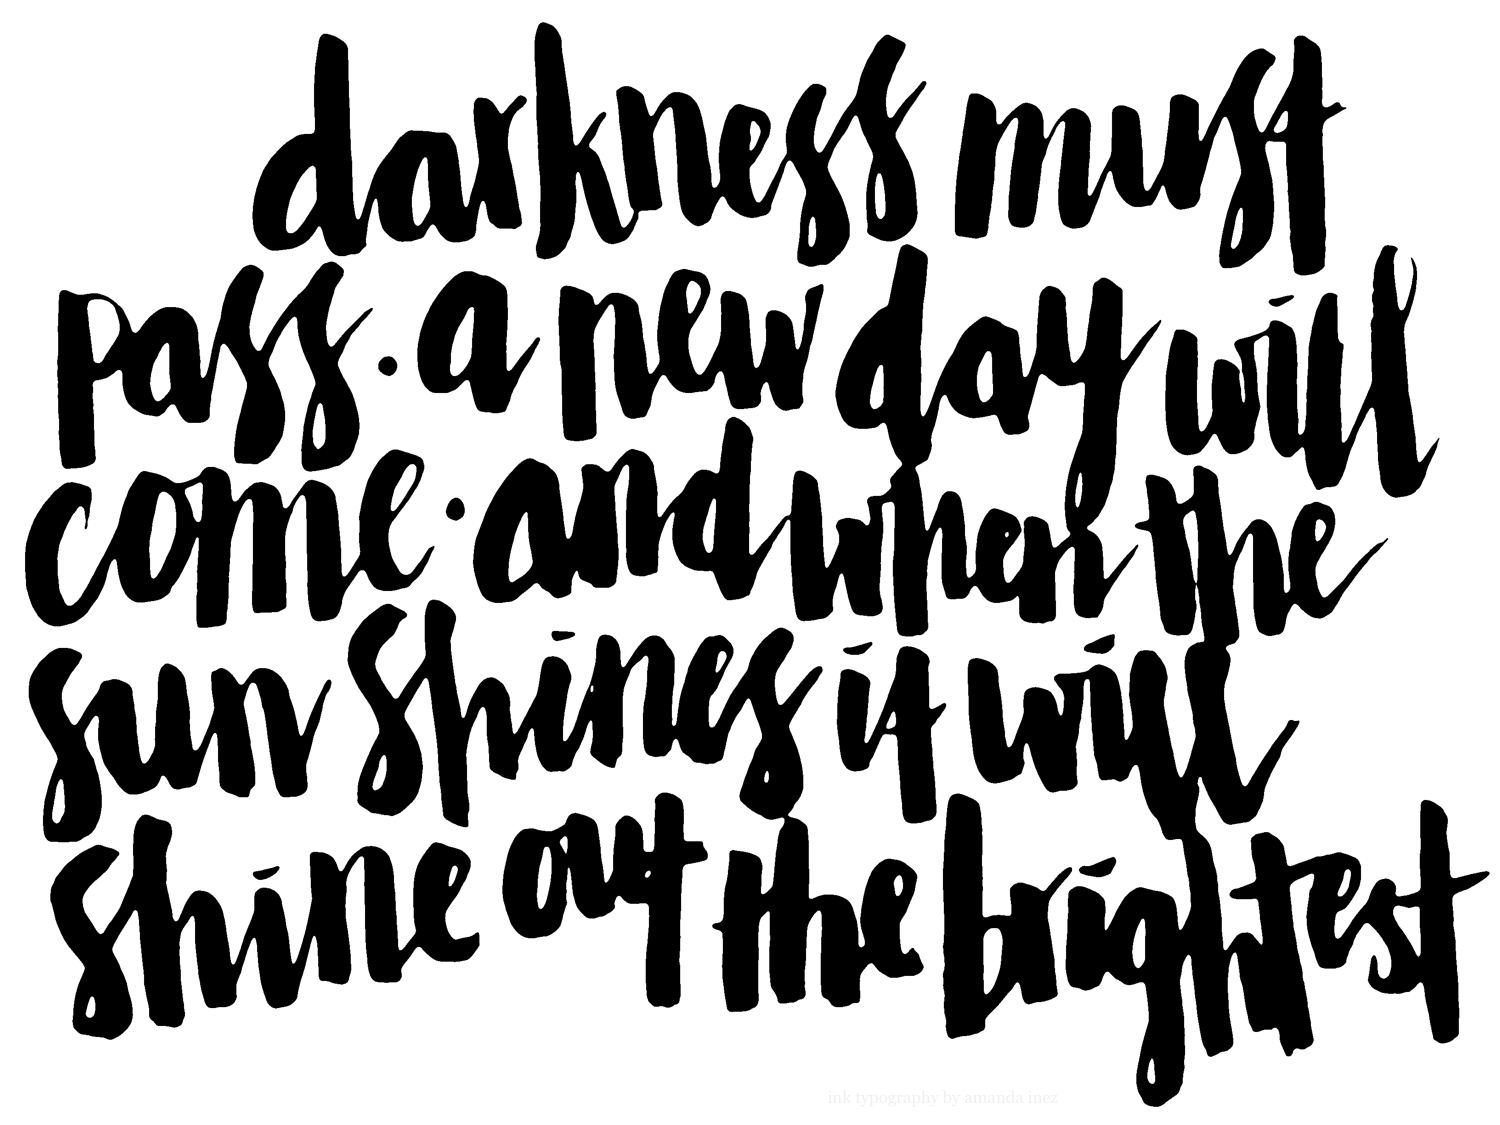 darkness must
pass. a new day will
come. and when the
sun shines it will
shine out the brightest
ink typography by amanda inez